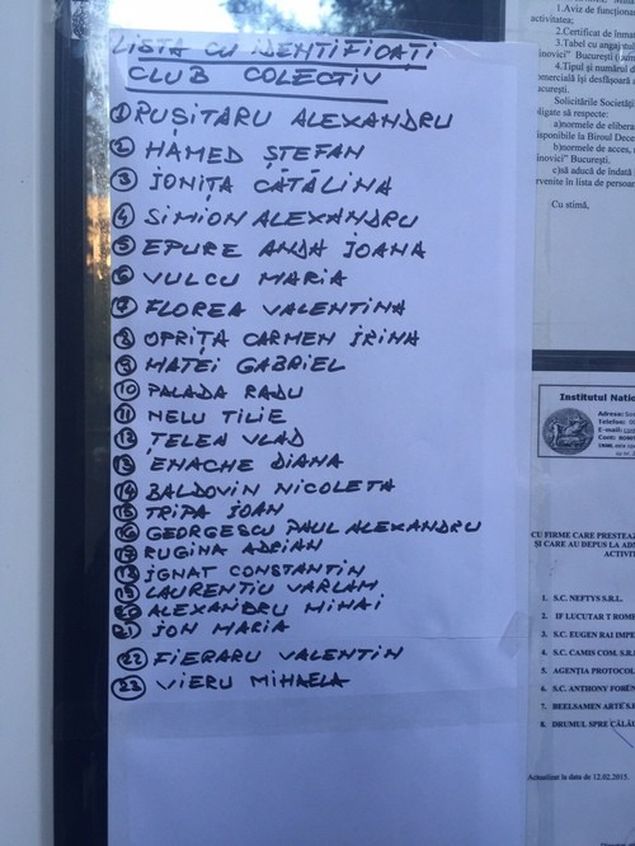 LISTA CU IDENTIFICAȚI
CLUB COLECTIV
1 PUȘITARU ALEXANDRU
2 HAMED ȘTEFAN
3 IONIȚA CĂTĂLINA
4 SIMION ALEXANDRU
5 EPURE ANDA IOANA
6 VULCU MARIA
7 FLOREA VALENTINA
8 OPRIȚA CARMEN IRINA
9 MATEI GABRIEL
10 PALADA RADU
11 NELU TILIE
12 ȚELEA VLAD
13 ENACHE DIANA
14 BALDOVIN NICOLETA
15 TRIPA IOAN
16 GEORGESCU PAUL ALEXANDRU
17 RUGINA ADRIAN
18 IGNAT CONSTANTIN
19 LAURENTIU VARLAM
20 ALEXANDRU MIHAI
21 ION MARIA
22 FIERARU VALENTIN
23 VIERU MIHAELA
1.Aviz de funcționa
activitatea;
2.Certificat de înma
3.Tabel cu angajat
inovici" București
4.Tipul și numărul d
omercială își desfășoară a
ucurești.
Solicitările Societăți
ligate să respecte:
a)normele de elibera
isponibile la Biroul Dece
b)normele de acces,
inovici" București.
c)să aducă de îndată
rvenite în lista de persoan
Cu stimă,
Institutul Națio
Adresa:
Telefon:
E-mail:
Cont:
CU FIRME CARE PRESTEAZ
ȘI CARE AU DEPUS LA ADM
ACTIVIT
1. S.C. NEFTYS S.R.L.
2. IF LUCUTAR T ROME
3. S.C. EUGEN RAI IMPE
4. S.C. CAMIS COM. S.R.
5. AGENȚIA PROTOCOL
6. S.C. ANTHONY FOREN
7. BEELSAMEN ARTE S.R
8. DRUMUL SPRE CĂLĂU
Actualizat la data de 12.02.2015.